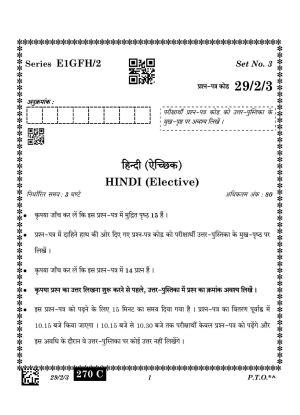 Series E1GFH/2
Set No. 3
प्रश्न-पत्र कोड 29/2/3
अनुक्रमांक :
परीक्षार्थी प्रश्न-पत्र कोड को उत्तर-पुस्तिका के
मुख-पृष्ठ पर अवश्य लिखें ।
हिन्दी (ऐच्छिक)
HINDI (Elective)
निर्धारित समय : 3 घण्टे
अधिकतम अंक : 80
कृपया जाँच कर लें कि इस प्रश्न-पत्र में मुद्रित पृष्ठ 15 हैं ।
प्रश्न-पत्र में दाहिने हाथ की ओर दिए गए प्रश्न-पत्र कोड को परीक्षार्थी उत्तर-पुस्तिका के मुख-पृष्ठ पर
लिखें ।
कृपया जाँच कर लें कि इस प्रश्न-पत्र में 14 प्रश्न हैं ।
कृपया प्रश्न का उत्तर लिखना शुरू करने से पहले, उत्तर-पुस्तिका में प्रश्न का क्रमांक अवश्य लिखें ।
इस प्रश्न-पत्र को पढ़ने के लिए 15 मिनट का समय दिया गया है । प्रश्न-पत्र का वितरण पूर्वाह्न में
10.15 बजे किया जाएगा । 10.15 बजे से 10.30 बजे तक परीक्षार्थी केवल प्रश्न-पत्र को पढ़ेंगे और
इस अवधि के दौरान वे उत्तर-पुस्तिका पर कोई उत्तर नहीं लिखेंगे ।
29/2/3
270 C
1
P.T.O.**